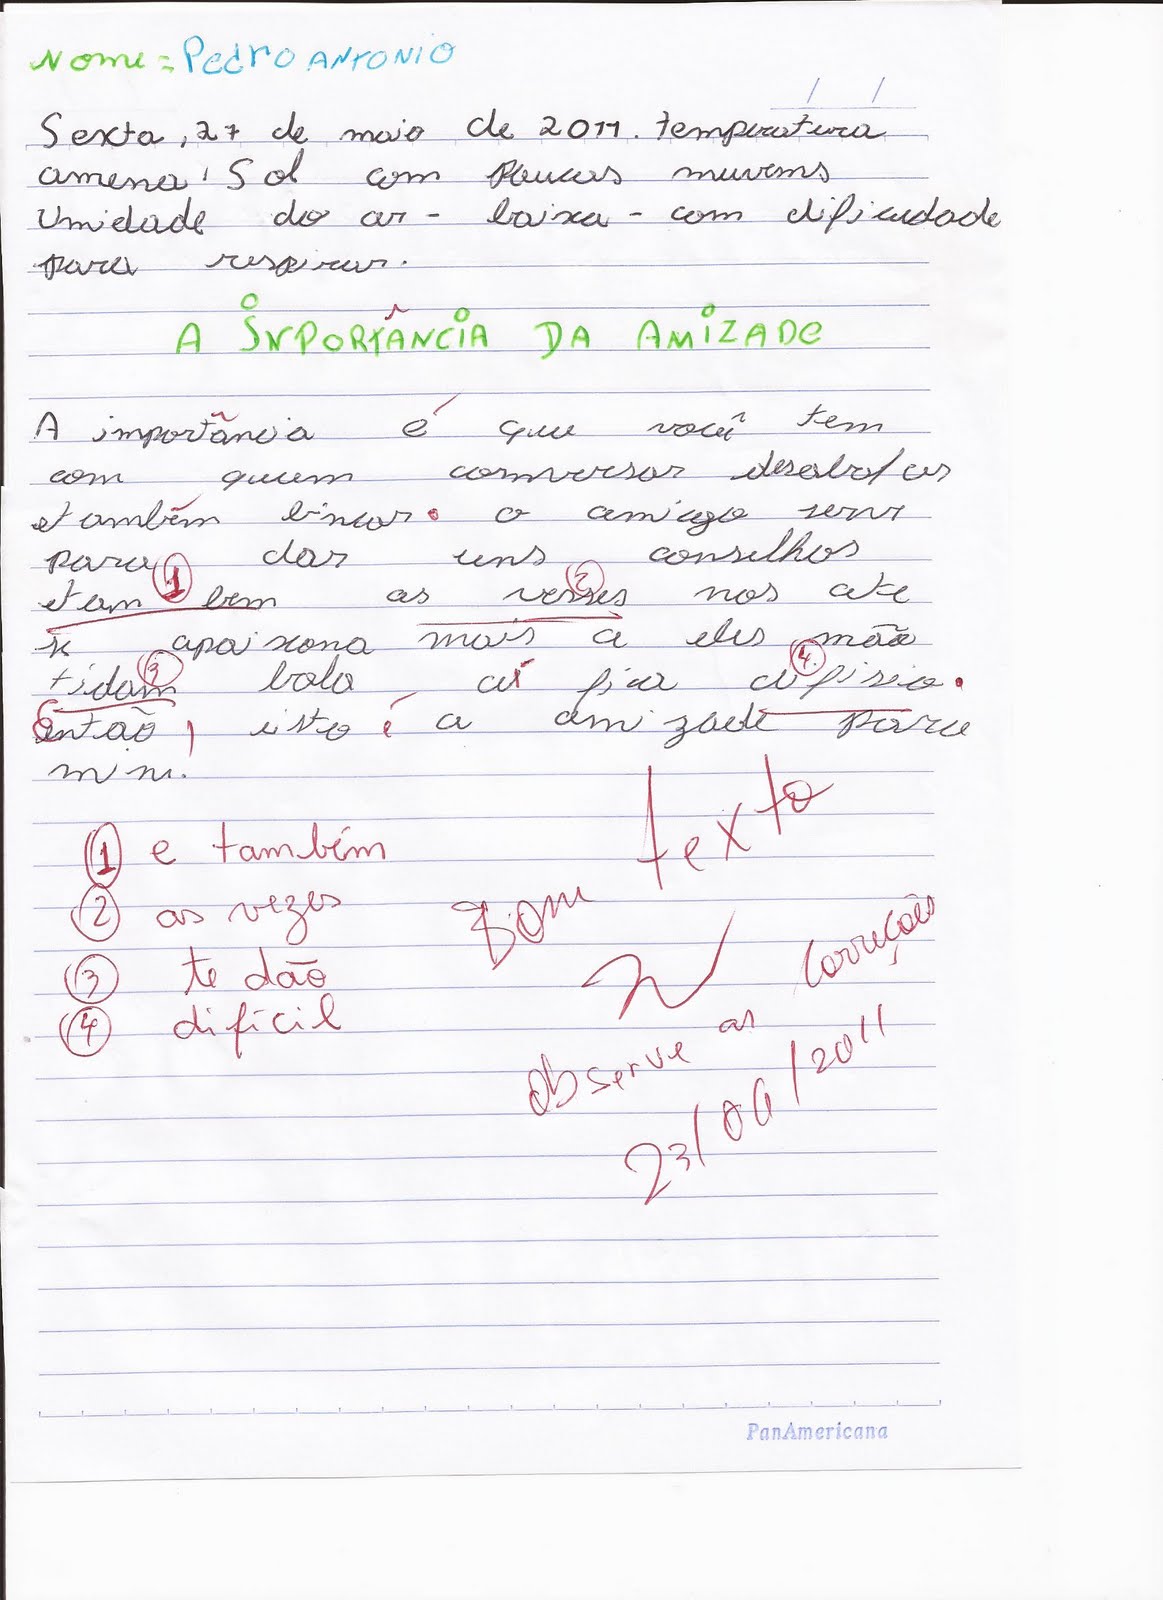 Nome = Pedro ANTONIO
/ /
Sexta, 27 de maio de 2011. temperatura
amena: Sol com poucas nuvems
Umidade do ar - baixa - com dificudade
para respirar.
A INPORTÂNCIA DA AMIZADE
A importância é que você tem
com quem comversar desabafas
etambém bincar. o amigo serve
para dar uns conselhos
etam bem as vesses nos ate
se apaixona mais a eles mão
tidam bola aí fica difisio.
então, isto é a amizade para
mim.
1 e também
2 as vezes
3 te dão
4 difícil
Bom texto
Observe as correções
23/06/2011
PanAmericana